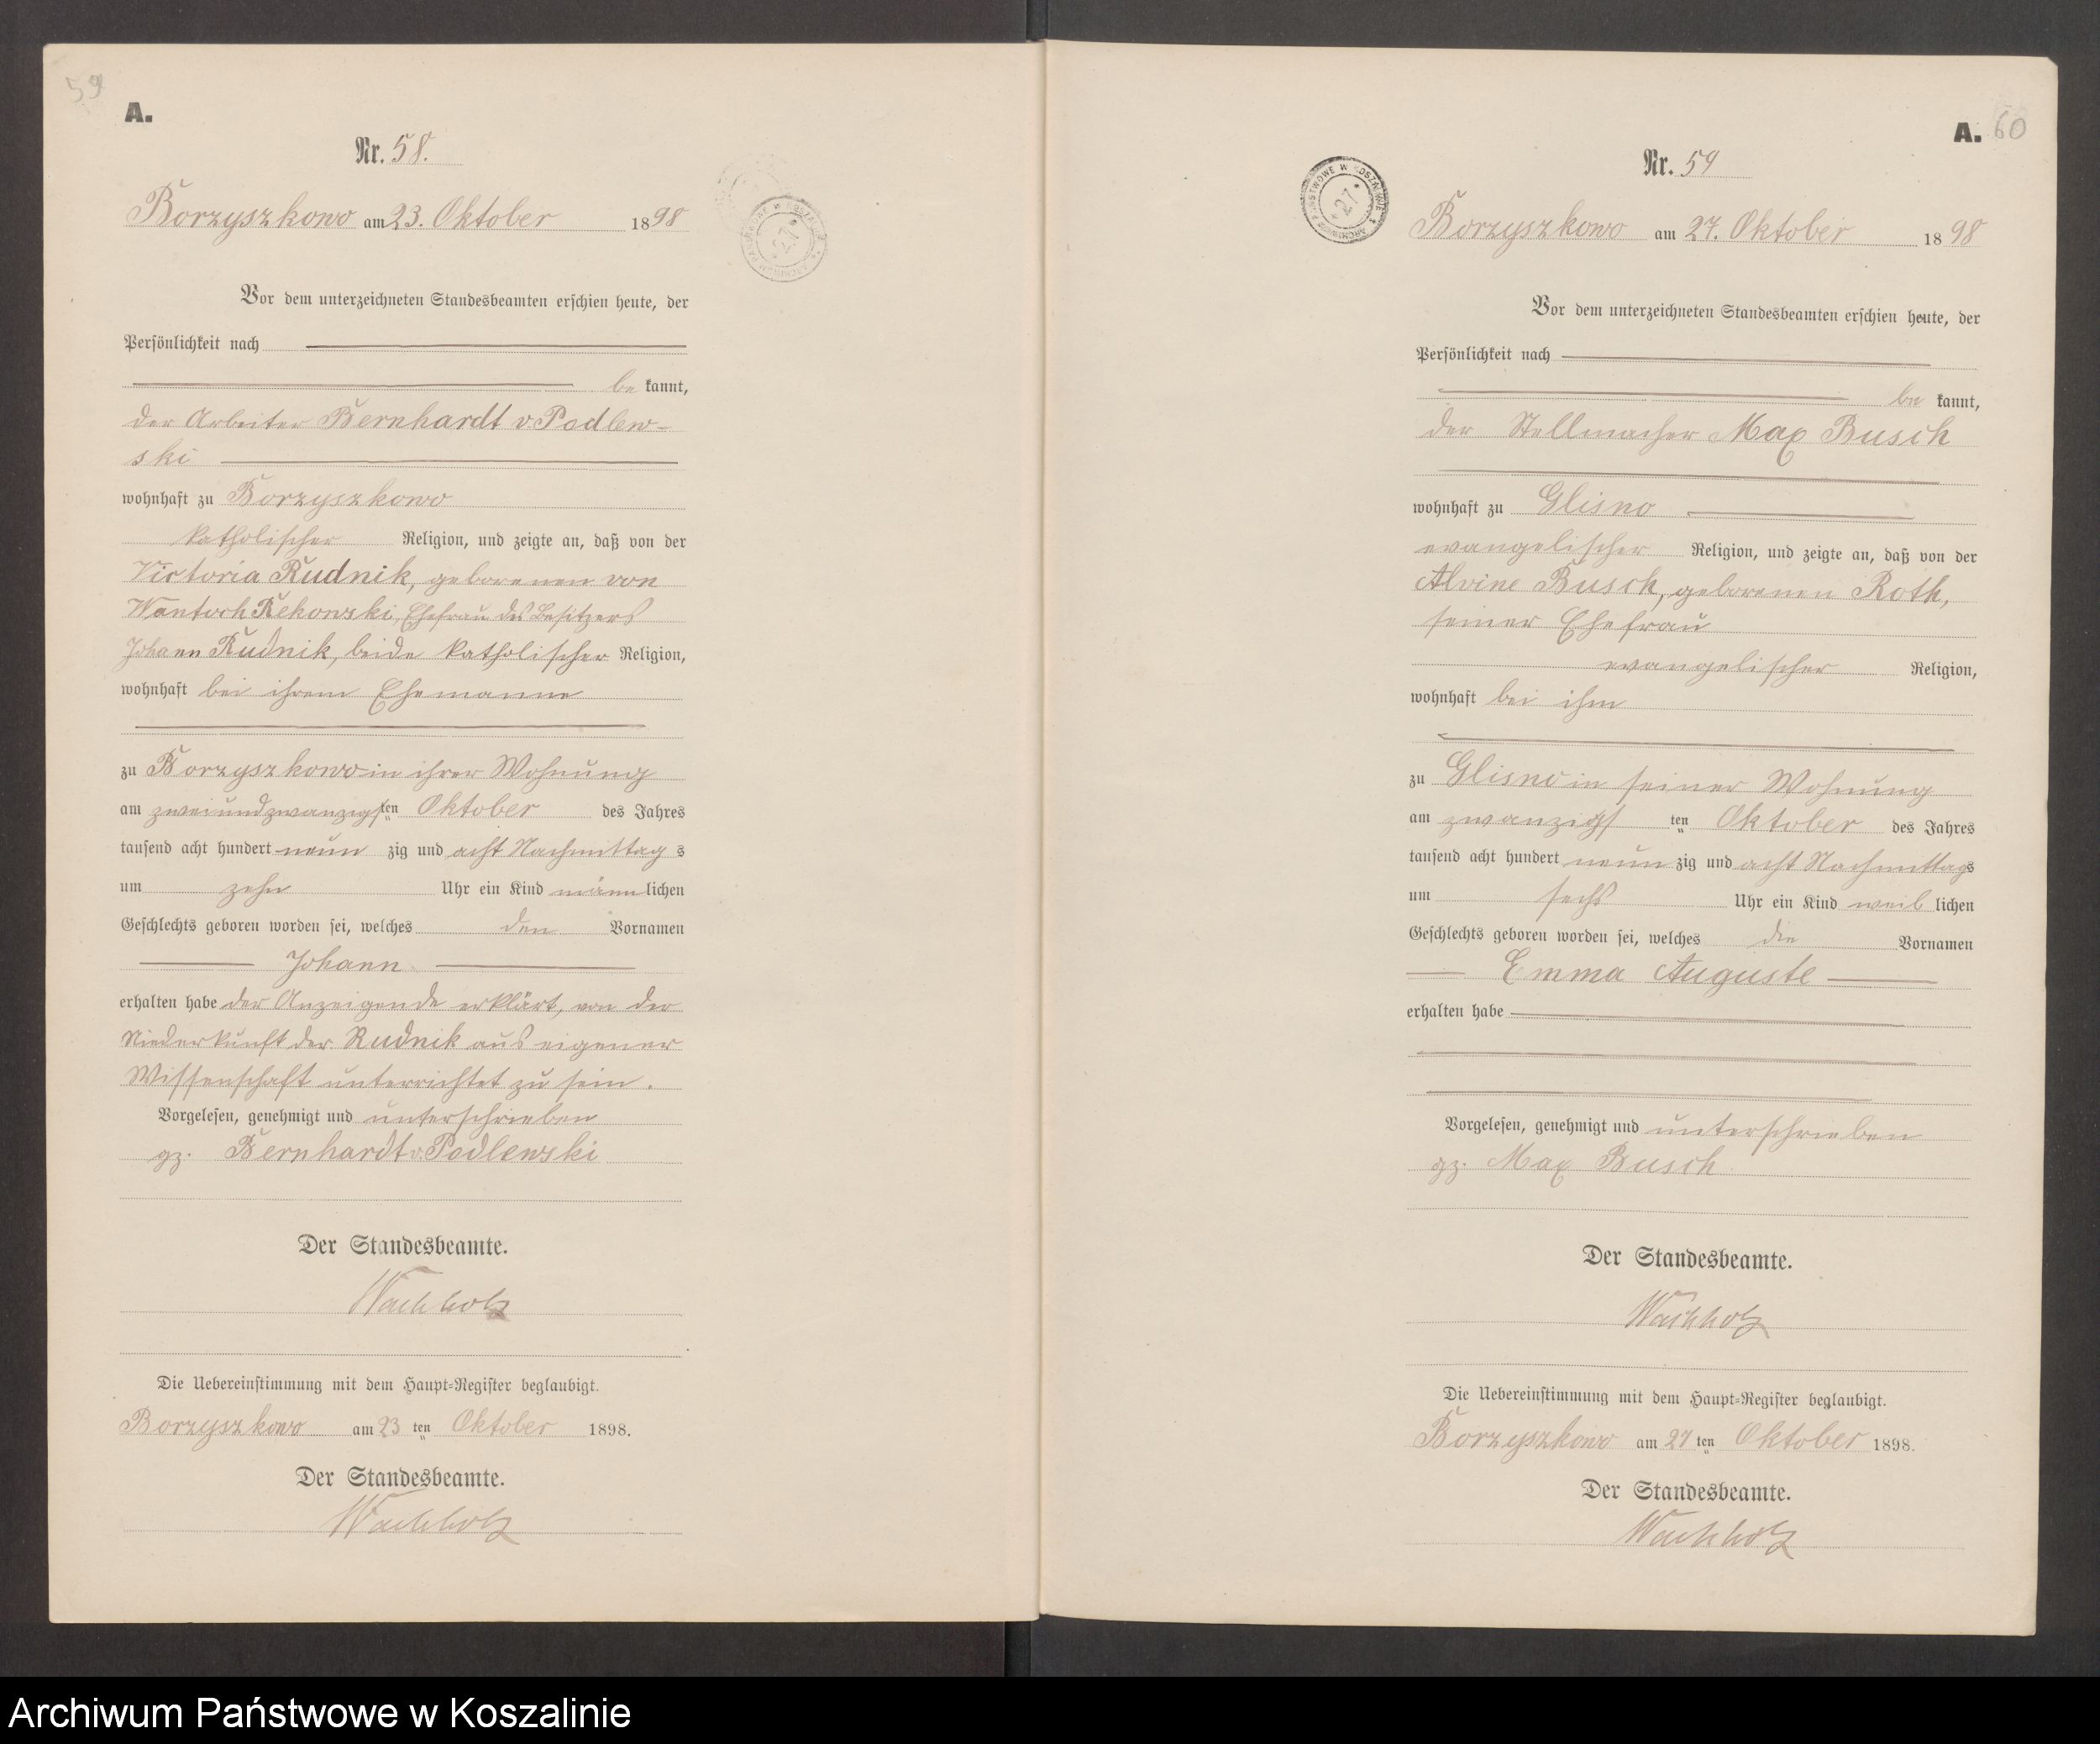 59
A.
Nr. 58.
Borzyszkowo am 23. Oktober 1898
Vor dem unterzeichneten Standesbeamten erschien heute, der
Persönlichkeit nach
be kannt,
der Arbeiter Bernhardt v. Podlew-
ski
wohnhaft zu Borzyszkowo
katholischer Religion, und zeigte an, daß von der
Victoria Rudnik, geborenen von
Wantoch Rekowski, Ehefrau des Besitzers
Johann Rudnik, beide katholischer Religion,
wohnhaft bei ihrem Ehemanne
zu Borzyszkowo in ihrer Wohnung
am zweiundzwanzigsten Oktober des Jahres
tausend acht hundert neun zig und acht Nachmittag s
um zehn Uhr ein Kind männlichen
Geschlechts geboren worden sei, welches den Vornamen
Johann
erhalten habe der Anzeigende erklärt, von der
Niederkunft der Rudnik aus eigener
Wissenschaft unterrichtet zu sein.
Vorgelesen, genehmigt und unterschrieben
gz. Bernhardt v. Podlewski
Der Standesbeamte.
Wachholz
Die Uebereinstimmung mit dem Haupt-Register beglaubigt.
Borzyszkowo am 23 ten Oktober 1898.
Der Standesbeamte.
Wachholz
A. 60
Nr. 59
ARCHIWUM PAŃSTWOWE W KOSZALINIE
* 27 *
Borzyszkowo am 27. Oktober 1898
Vor dem unterzeichneten Standesbeamten erschien heute, der
Persönlichkeit nach
be kannt,
der Stellmacher Max Busch
wohnhaft zu Glisno
evangelischer Religion, und zeigte an, daß von der
Alvine Busch, geborenen Roth,
seiner Ehefrau
evangelischer Religion,
wohnhaft bei ihm
zu Glisno in seiner Wohnung
am zwanzigs ten Oktober des Jahres
tausend acht hundert neun zig und acht Nachmittags
um sechs Uhr ein Kind weib lichen
Geschlechts geboren worden sei, welches die Vornamen
Emma Auguste
erhalten habe
Vorgelesen, genehmigt und unterschrieben
gz. Max Busch
Der Standesbeamte.
Wachholz
Die Uebereinstimmung mit dem Haupt-Register beglaubigt.
Borzyszkowo am 27 ten Oktober 1898.
Der Standesbeamte.
Wachholz
Archiwum Państwowe w Koszalinie